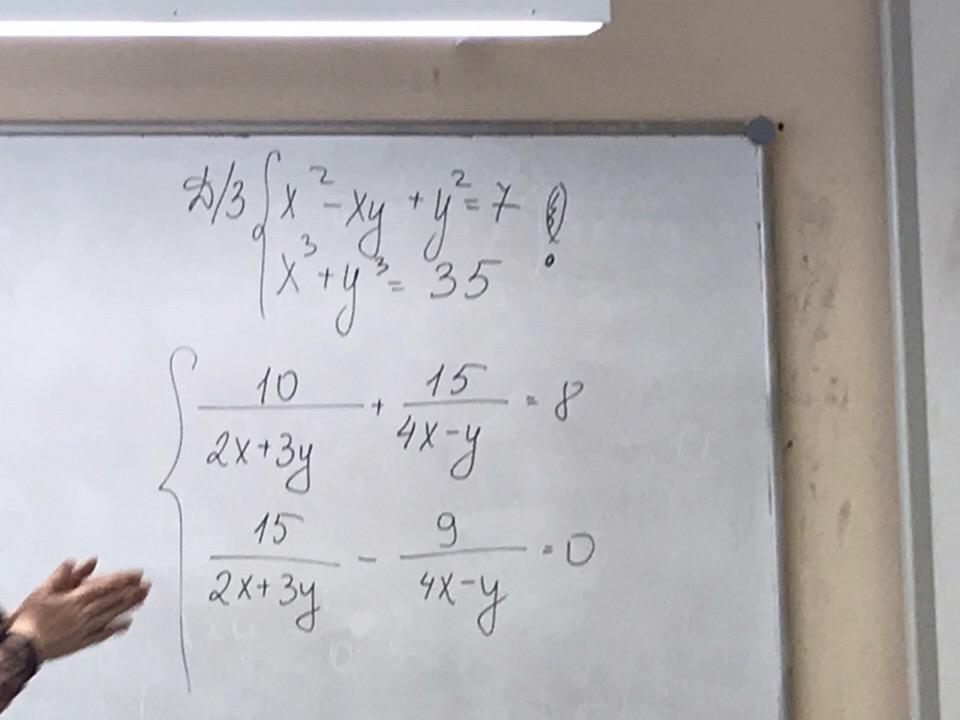 Д/З { x² - xy + y² = 7 !
x³ + y³ = 35
{ 10/(2x+3y) + 15/(4x-y) = 8
15/(2x+3y) - 9/(4x-y) = 0